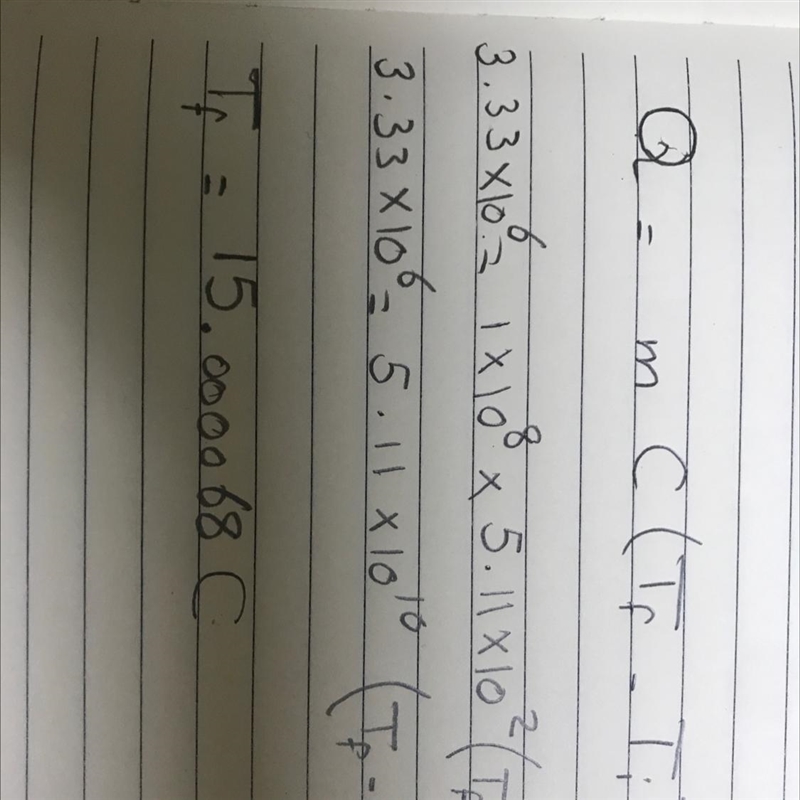 Q = m C (Tf - Ti
3.33×10⁶ = 1×10⁸ × 5.11×10² (Tf
3.33×10⁶ = 5.11×10¹⁰ (Tf -
Tf = 15.000068 C